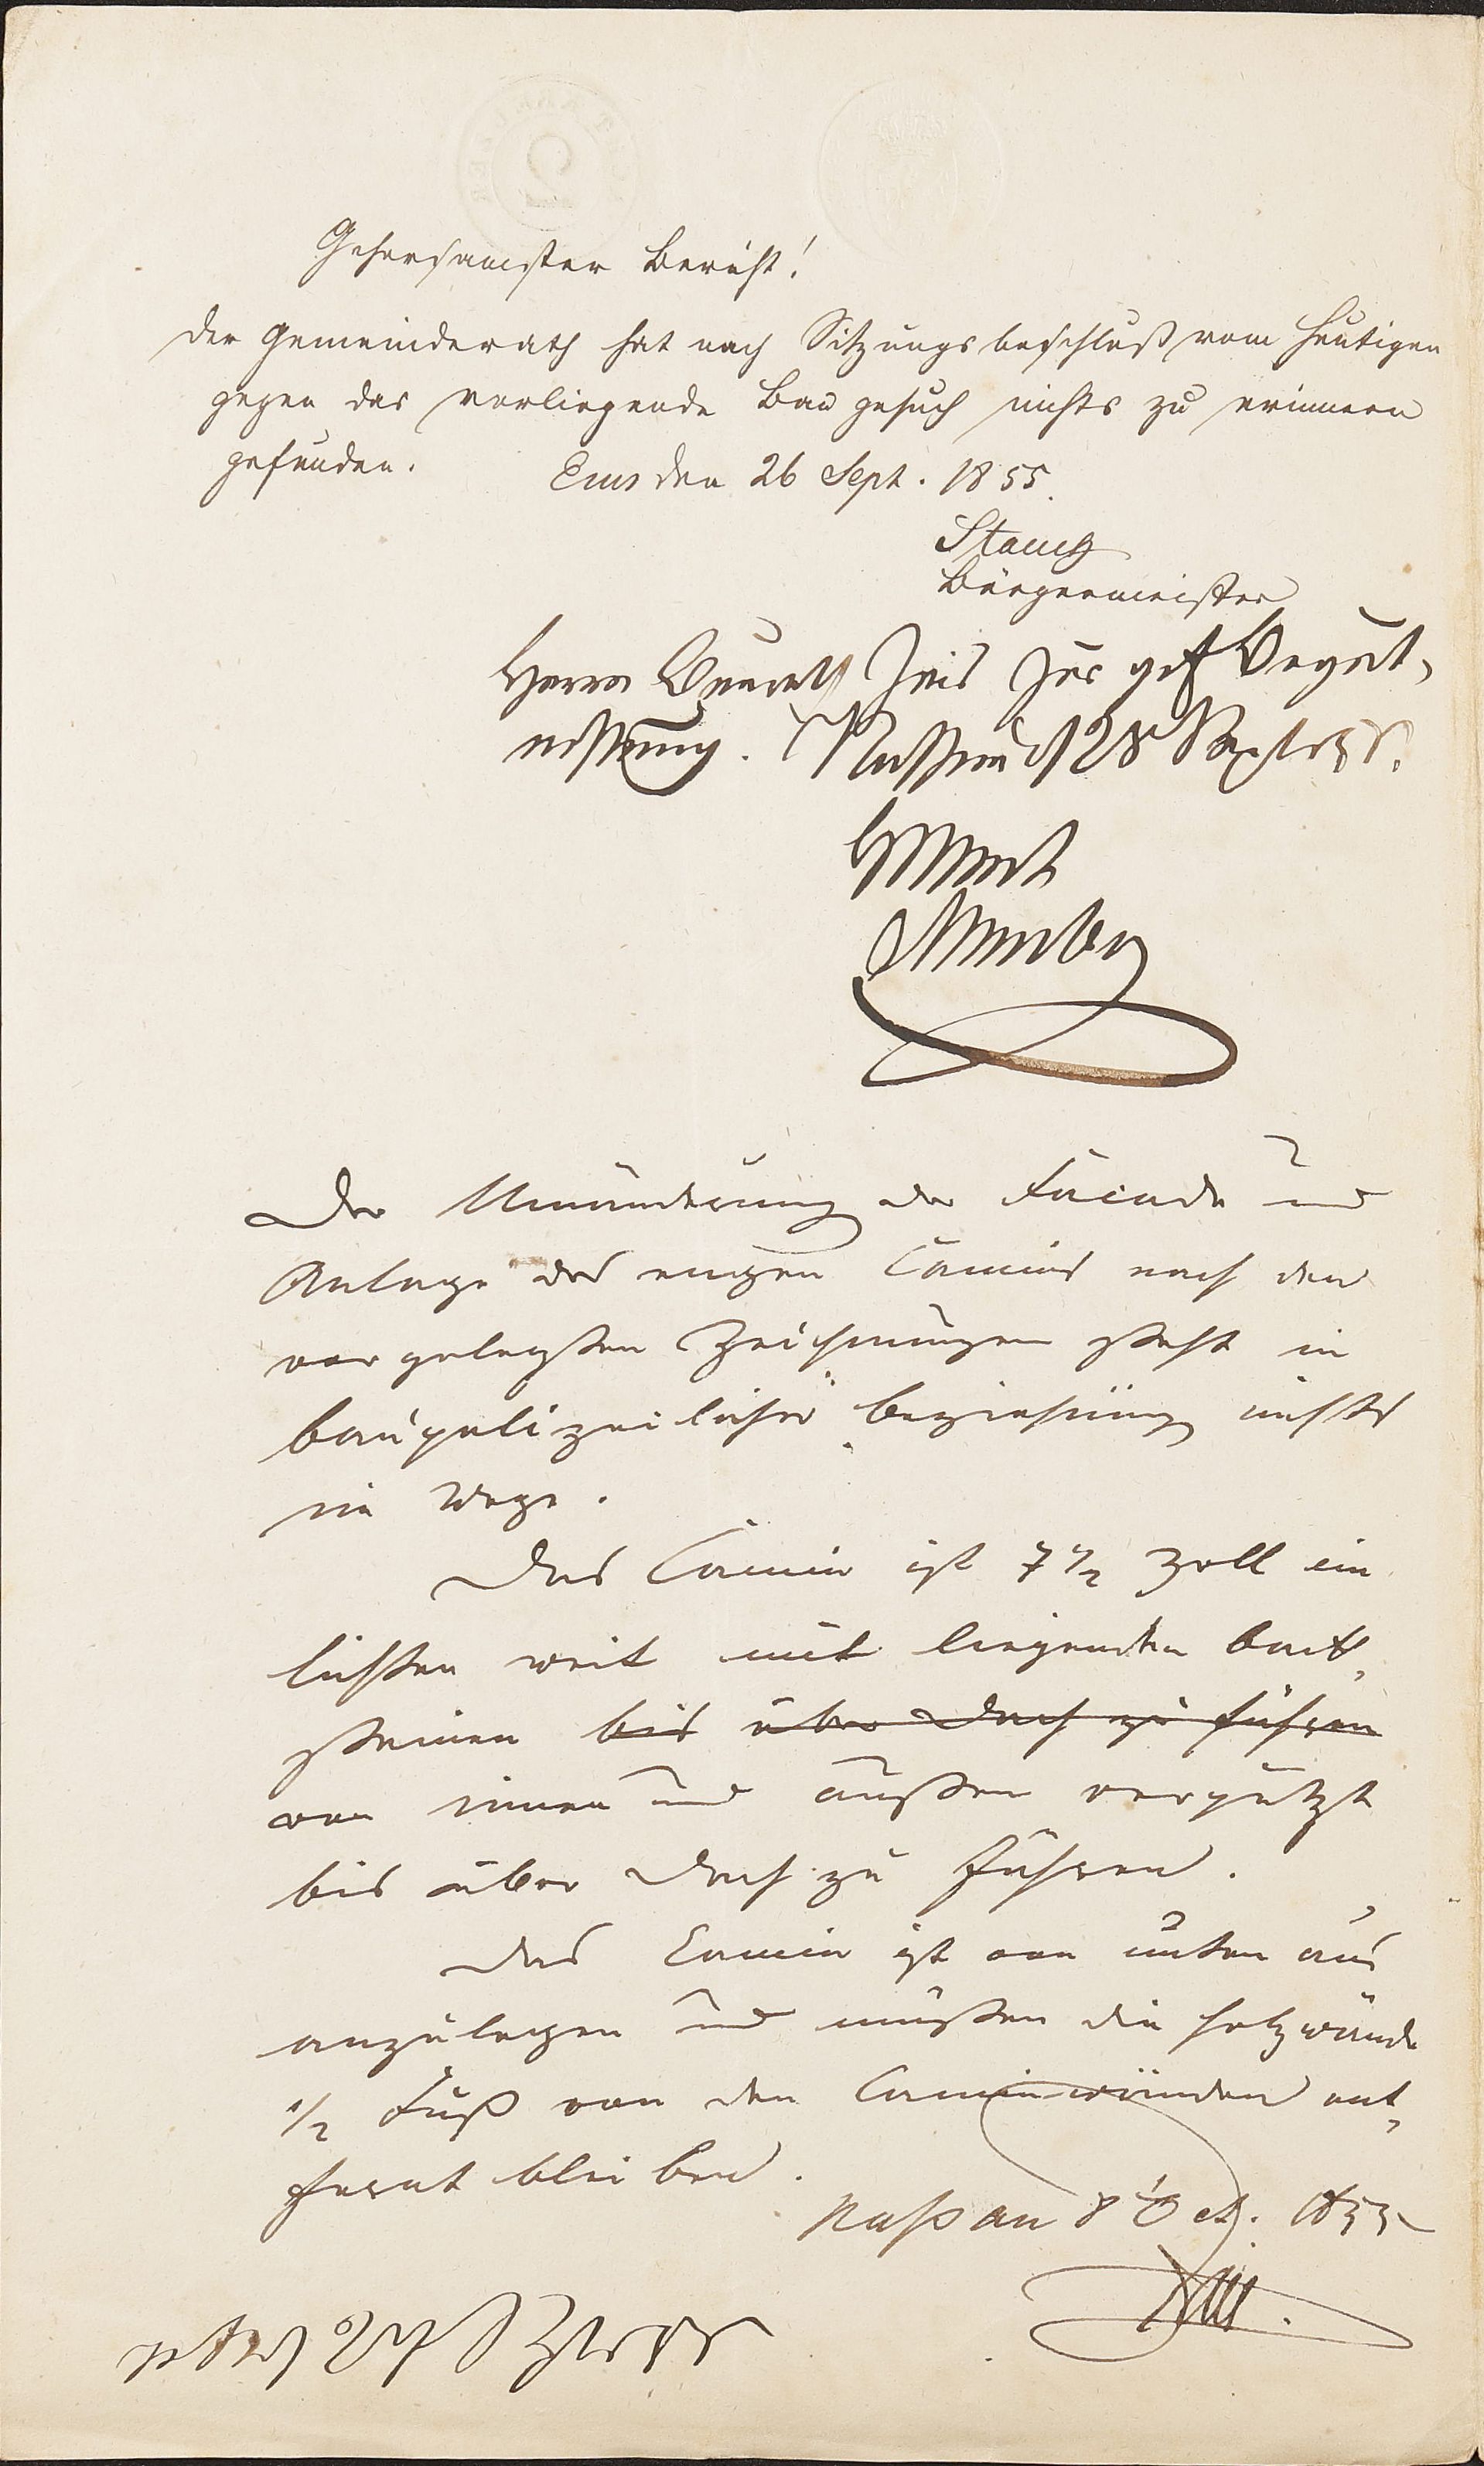 Gehorsamster Bericht!
Der Gemeinderath hat nach Sitzungsbeschluß vom Heutigen
gegen das vorliegende Baugesuch nichts zu erinnern
gefunden. Ems den 26 Sept. 1855.
Bürgermeister
Herrn Baurath zur gef Begut,
achtung. Nassau d 28 Septr 55.
Der Umänderung der Facade und
Anlage des engen Camins nach den
vorgelegten Zeichnungen steht in
baupolizeilicher Beziehung nichts
im Wege.
Das Camin ist 7 1/2 Zoll im
lichten weit mit liegenden Back,
steinen bis über Dach zu führen
von innen und außen verputzt
bis über Dach zu führen.
Das Camin ist von unten aus
anzulegen und müßen die Holzwände
1/2 Fuß von den Caminwänden ent,
fernt bleiben.
Nassau 8 Oct. 1855